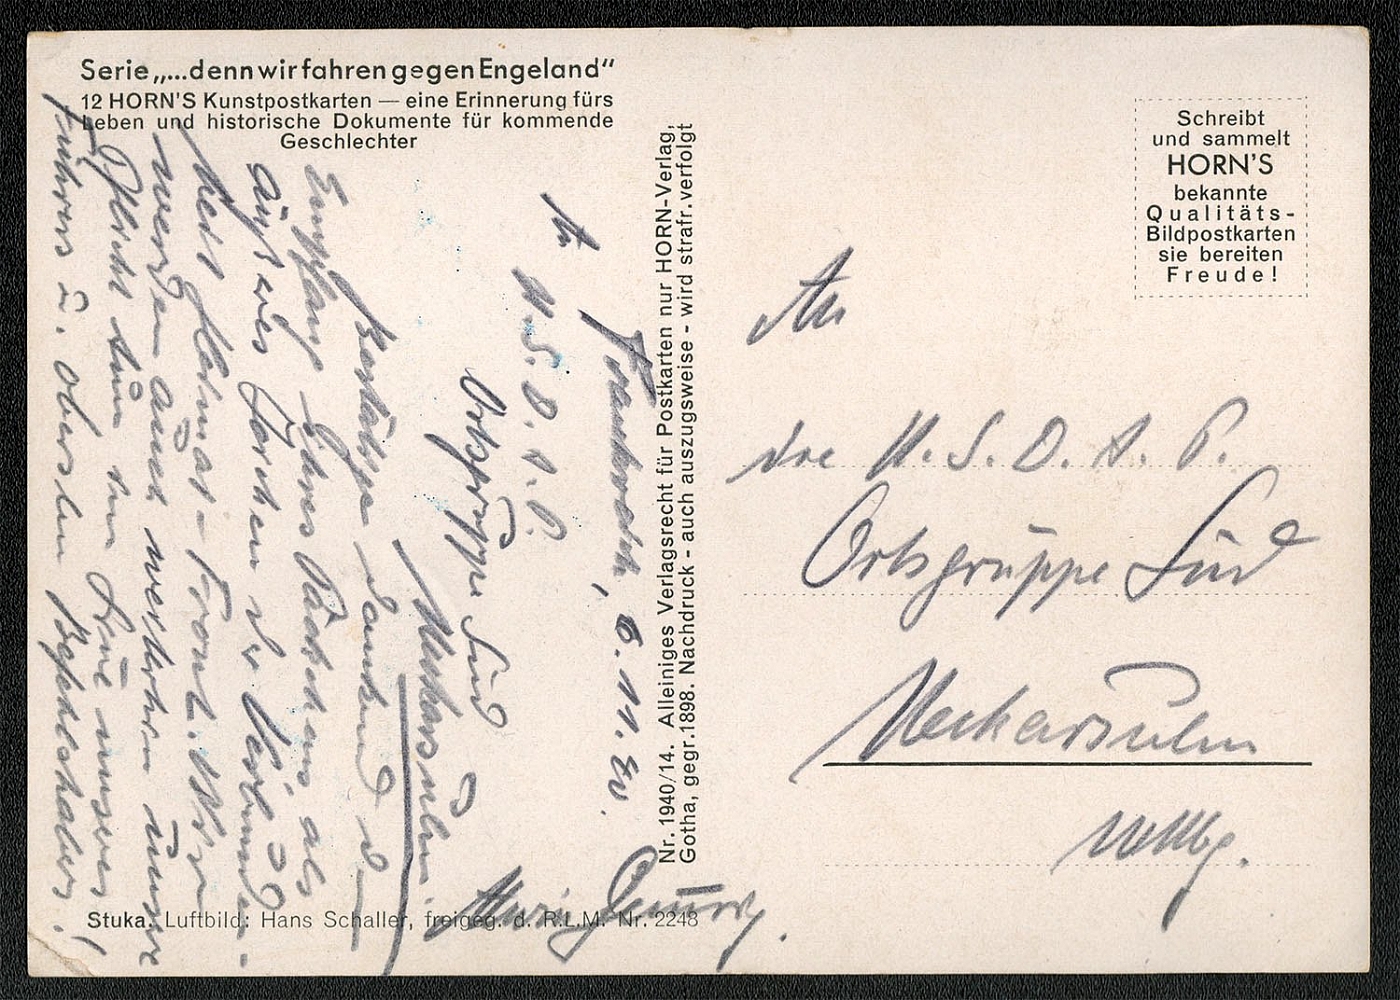 Serie „...denn wir fahren gegen Engeland“
12 HORN'S Kunstpostkarten — eine Erinnerung fürs
Leben und historische Dokumente für kommende
Geschlechter
Frankreich, 6.11.40.
An
N.S.D.A.P.
Ortsgruppe Süd
Neckarsulm.
Bestätige dankend d
Empfang Ihres Päckchens als
Zeichen der Verbunden-
heit Heimat-Front. Wir
werden auch weiterhin unsere
Pflicht tun im Sinne unseres
Führers u. obersten Befehlshabers!
Stuka. Luftbild: Hans Schaller, freigeg. d. R.L.M. Nr. 2248
Nr. 1940/14. Alleiniges Verlagsrecht für Postkarten nur HORN-Verlag,
Gotha, gegr.1898. Nachdruck - auch auszugsweise - wird strafr. verfolgt
Schreibt
und sammelt
HORN'S
bekannte
Qualitäts-
Bildpostkarten
sie bereiten
Freude!
An
die N.S.D.A.P.
Ortsgruppe Süd
Neckarsulm
Wttbg.